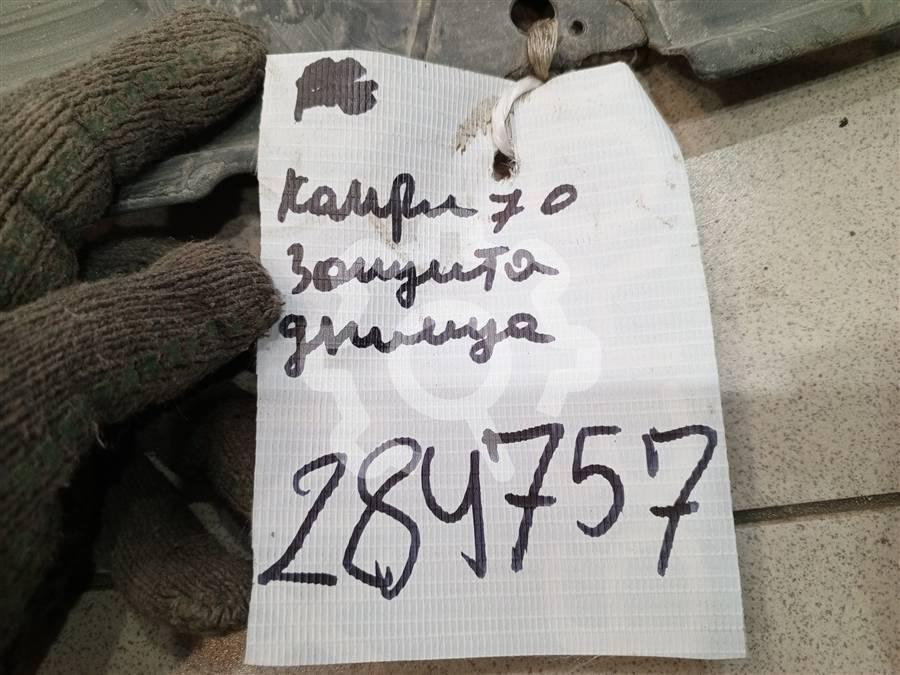 Камри 70
Защита
днища
284757